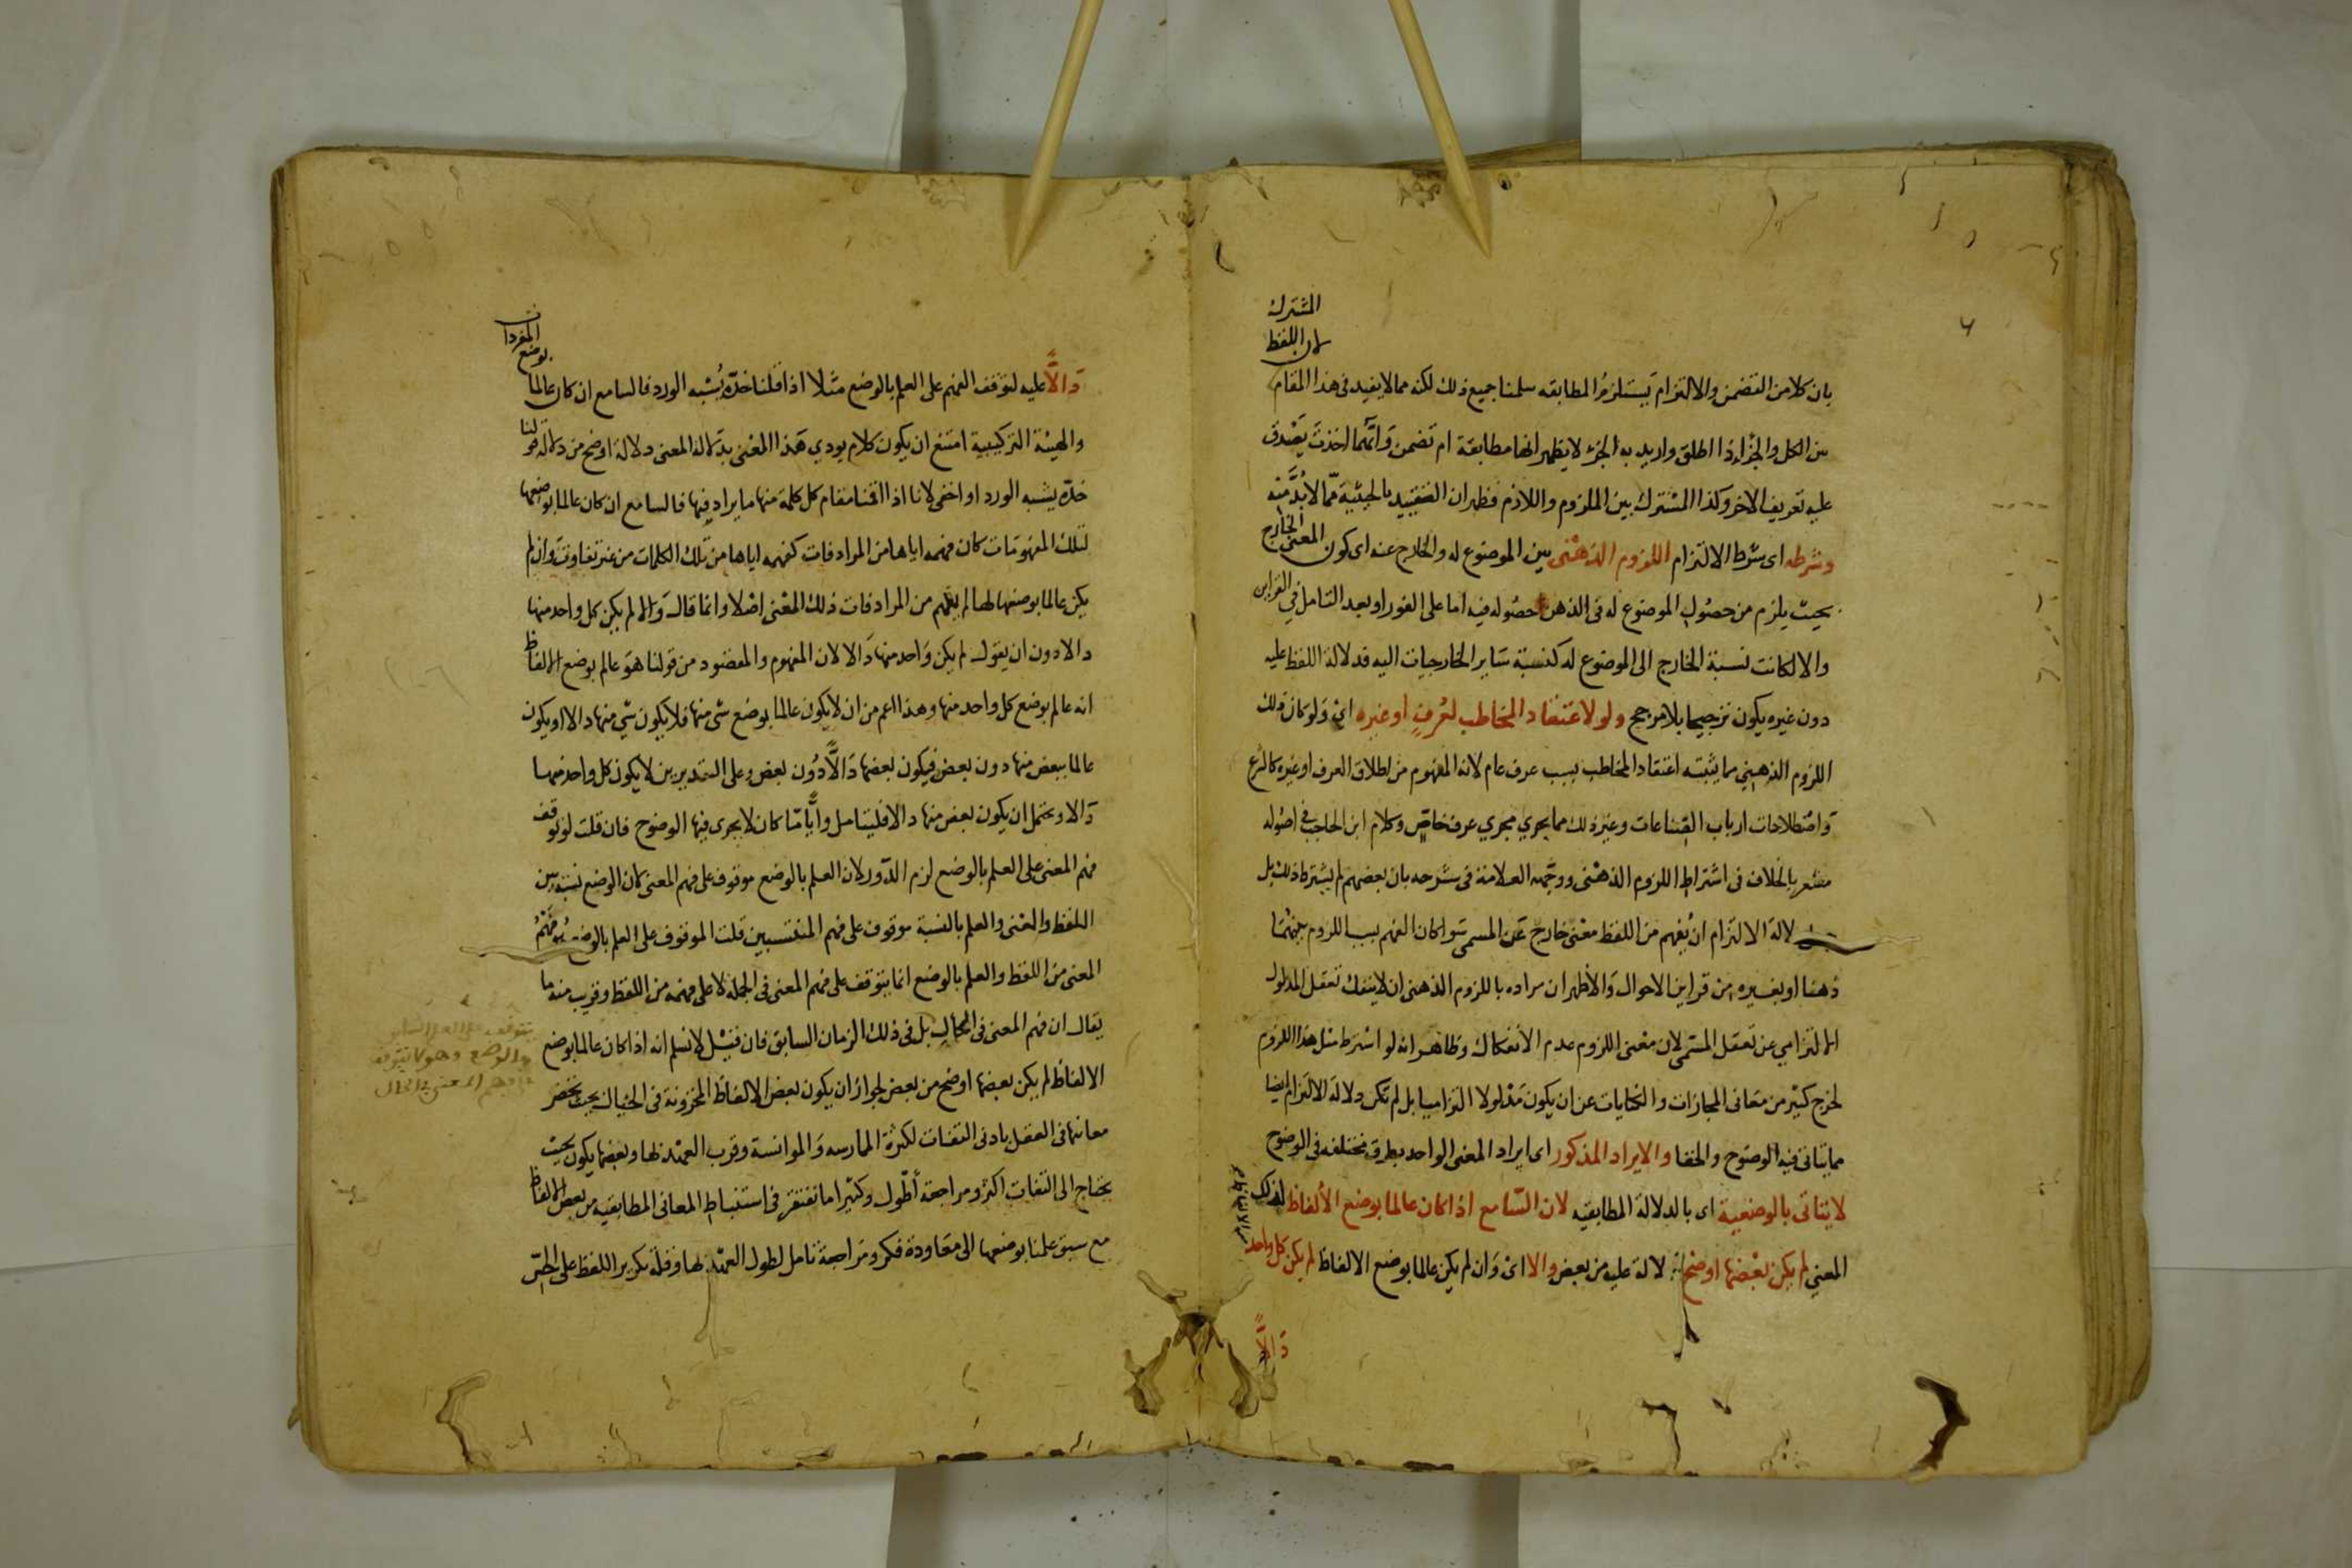 بان كلا من التضمن والالتزام يستلزم المطابقه سلمنا جميع ذلك لكنه مما لا يفيد فى هذا المقام
لان اللفظ المشترك
بين الكل والجزء اذا اطلق واريد به الجزء لا يظهر انها مطابقة ام تضمن وايهما اخذت يصدق
عليه تعريف الاخر وكذا المشترك بين الملزوم واللازم فظهر ان التقييد بالحيثية مما لا بد منه
وشرطه اى شرط الالتزام اللزوم الذهنى بين الموضوع له والخارج عنه اى كون المعنى الخارج
بحيث يلزم من حصول الموضوع له فى الذهن حصوله فيه اما على الفور او بعد التامل في القراين
والا لكانت نسبة الخارج الى الموضوع له كنسبة ساير الخارجيات اليه فدلالة اللفظ عليه
دون غيره يكون ترجيحا بلا مرجح ولو لاعتقاد المخاطب لعرف او غيره اى ولو كان ذلك
اللزوم الذهني مما يثبته اعتقاد المخاطب بسبب عرف عام لانه المفهوم من اطلاق العرف او غيره كالشرع
واصطلاحات ارباب الصناعات وغير ذلك مما يجري مجري عرف خاص وكلام ابن الحاجب في اصوله
مشعر بالخلاف فى اشتراط اللزوم الذهنى ووجهه العلامة فى شرحه بان بعضهم لم يشترط ذلك بل
لالة الالتزام ان يفهم من اللفظ معنى خارج عن المسمى سواء كان الفهم بسبب اللزوم بينهما
ذهنا او بغيره من قراين الاحوال والاظهر ان مراده باللزوم الذهنى ان لا ينفك تعقل المدلول
الالتزامي عن تعقل المسمى لان معنى اللزوم عدم الانفكاك وظاهر انه لو اشترط مثل هذا اللزوم
لخرج كثير من معانى المجازات والكنايات عن ان يكون مدلولا التزاميا بل لم تكن دلالة الالتزام ايضا
مما يتاتى فيه الوضوح والخفا والايراد المذكور اى ايراد المعنى الواحد بطرق مختلفه فى الوضوح
لا يتاتى بالوضعية اى بالدلالة المطابقيه لان السامع اذا كان عالما بوضع الألفاظ لذلك
المعني لم يكن بعضها اوضح دلالة عليه من بعض والا اى وان لم يكن عالما بوضع الالفاظ لم يكن كل واحد
دالا
دالا عليه لتوقف الفهم على العلم بالوضع مثلا اذا قلنا خده يشبه الورد فالسامع ان كان عالما
بوضع المفردات
والهيئة التركيبية امتنع ان يكون كلام يودي هذا المعنى بدلالة المعنى دلالة اوضح من دلالة قولنا
خده يشبه الورد او اخفى لانا اذا اقمنا مقام كل كلمة منها ما يرادفها فالسامع ان كان عالما بوضعها
لتلك المفهومات كان فهمه اياها من المرادفات كفهمه اياها من تلك الكلمات من غير تفاوت وان لم
يكن عالما بوضعها لها لم يفهم من المرادفات ذلك المعنى اصلا وانما قال والا لم يكن كل واحد منها
دالا دون ان يقول لم يكن واحد منها دالا لان المفهوم والمقصود من قولنا هو عالم بوضع الالفاظ
انه عالم بوضع كل واحد منها وهذا اعم من ان لا يكون عالما بوضع شى منها فلا يكون شي منها دالا او يكون
عالما ببعض منها دون بعض فيكون بعضها دالا دون بعض وعلى التقديرين لا يكون كل واحد منها
دالا ويحتمل ان يكون بعض منها دالا فليتامل وايا ما كان لا يجرى فيها الوضوح فان قلت لو توقف
فهم المعنى على العلم بالوضع لزم الدور لان العلم بالوضع موقوف على فهم المعنى لان الوضع نسبة بين
اللفظ والمعنى والعلم بالنسبة موقوف على فهم المنتسبين قلت الموقوف على العلم بالوضع هو فهم
المعنى من اللفظ والعلم بالوضع انما يتوقف على فهم المعنى فى الجملة لا على فهمه من اللفظ وقريب منه ما
يقال ان فهم المعنى فى الحال بل فى ذلك الزمان السابق فان قيل لا نسلم انه اذا كان عالما بوضع
يتوقف على العلم السابق
بالوضع وهو لا يتوقف
على فهم المعنى فى الحال
الالفاظ لم يكن بعضها اوضح من بعض لجواز ان يكون بعض الالفاظ المخزونة فى الخيال بحيث يحضر
معانيها فى العقل بادنى التفات لكثرة الممارسه والموانسة وقرب العهد لها وبعضها يكون بحيث
يحتاج الى التفات اكثر ومراجعة أطول وكثيرا ما نفتقر فى استنباط المعانى المطابقيه من بعض الالفاظ
مع سبق علمنا بوضعها الى معاودة فكر ومراجعة تامل لطول العهد لها وقلة تكرير اللفظ على الحس